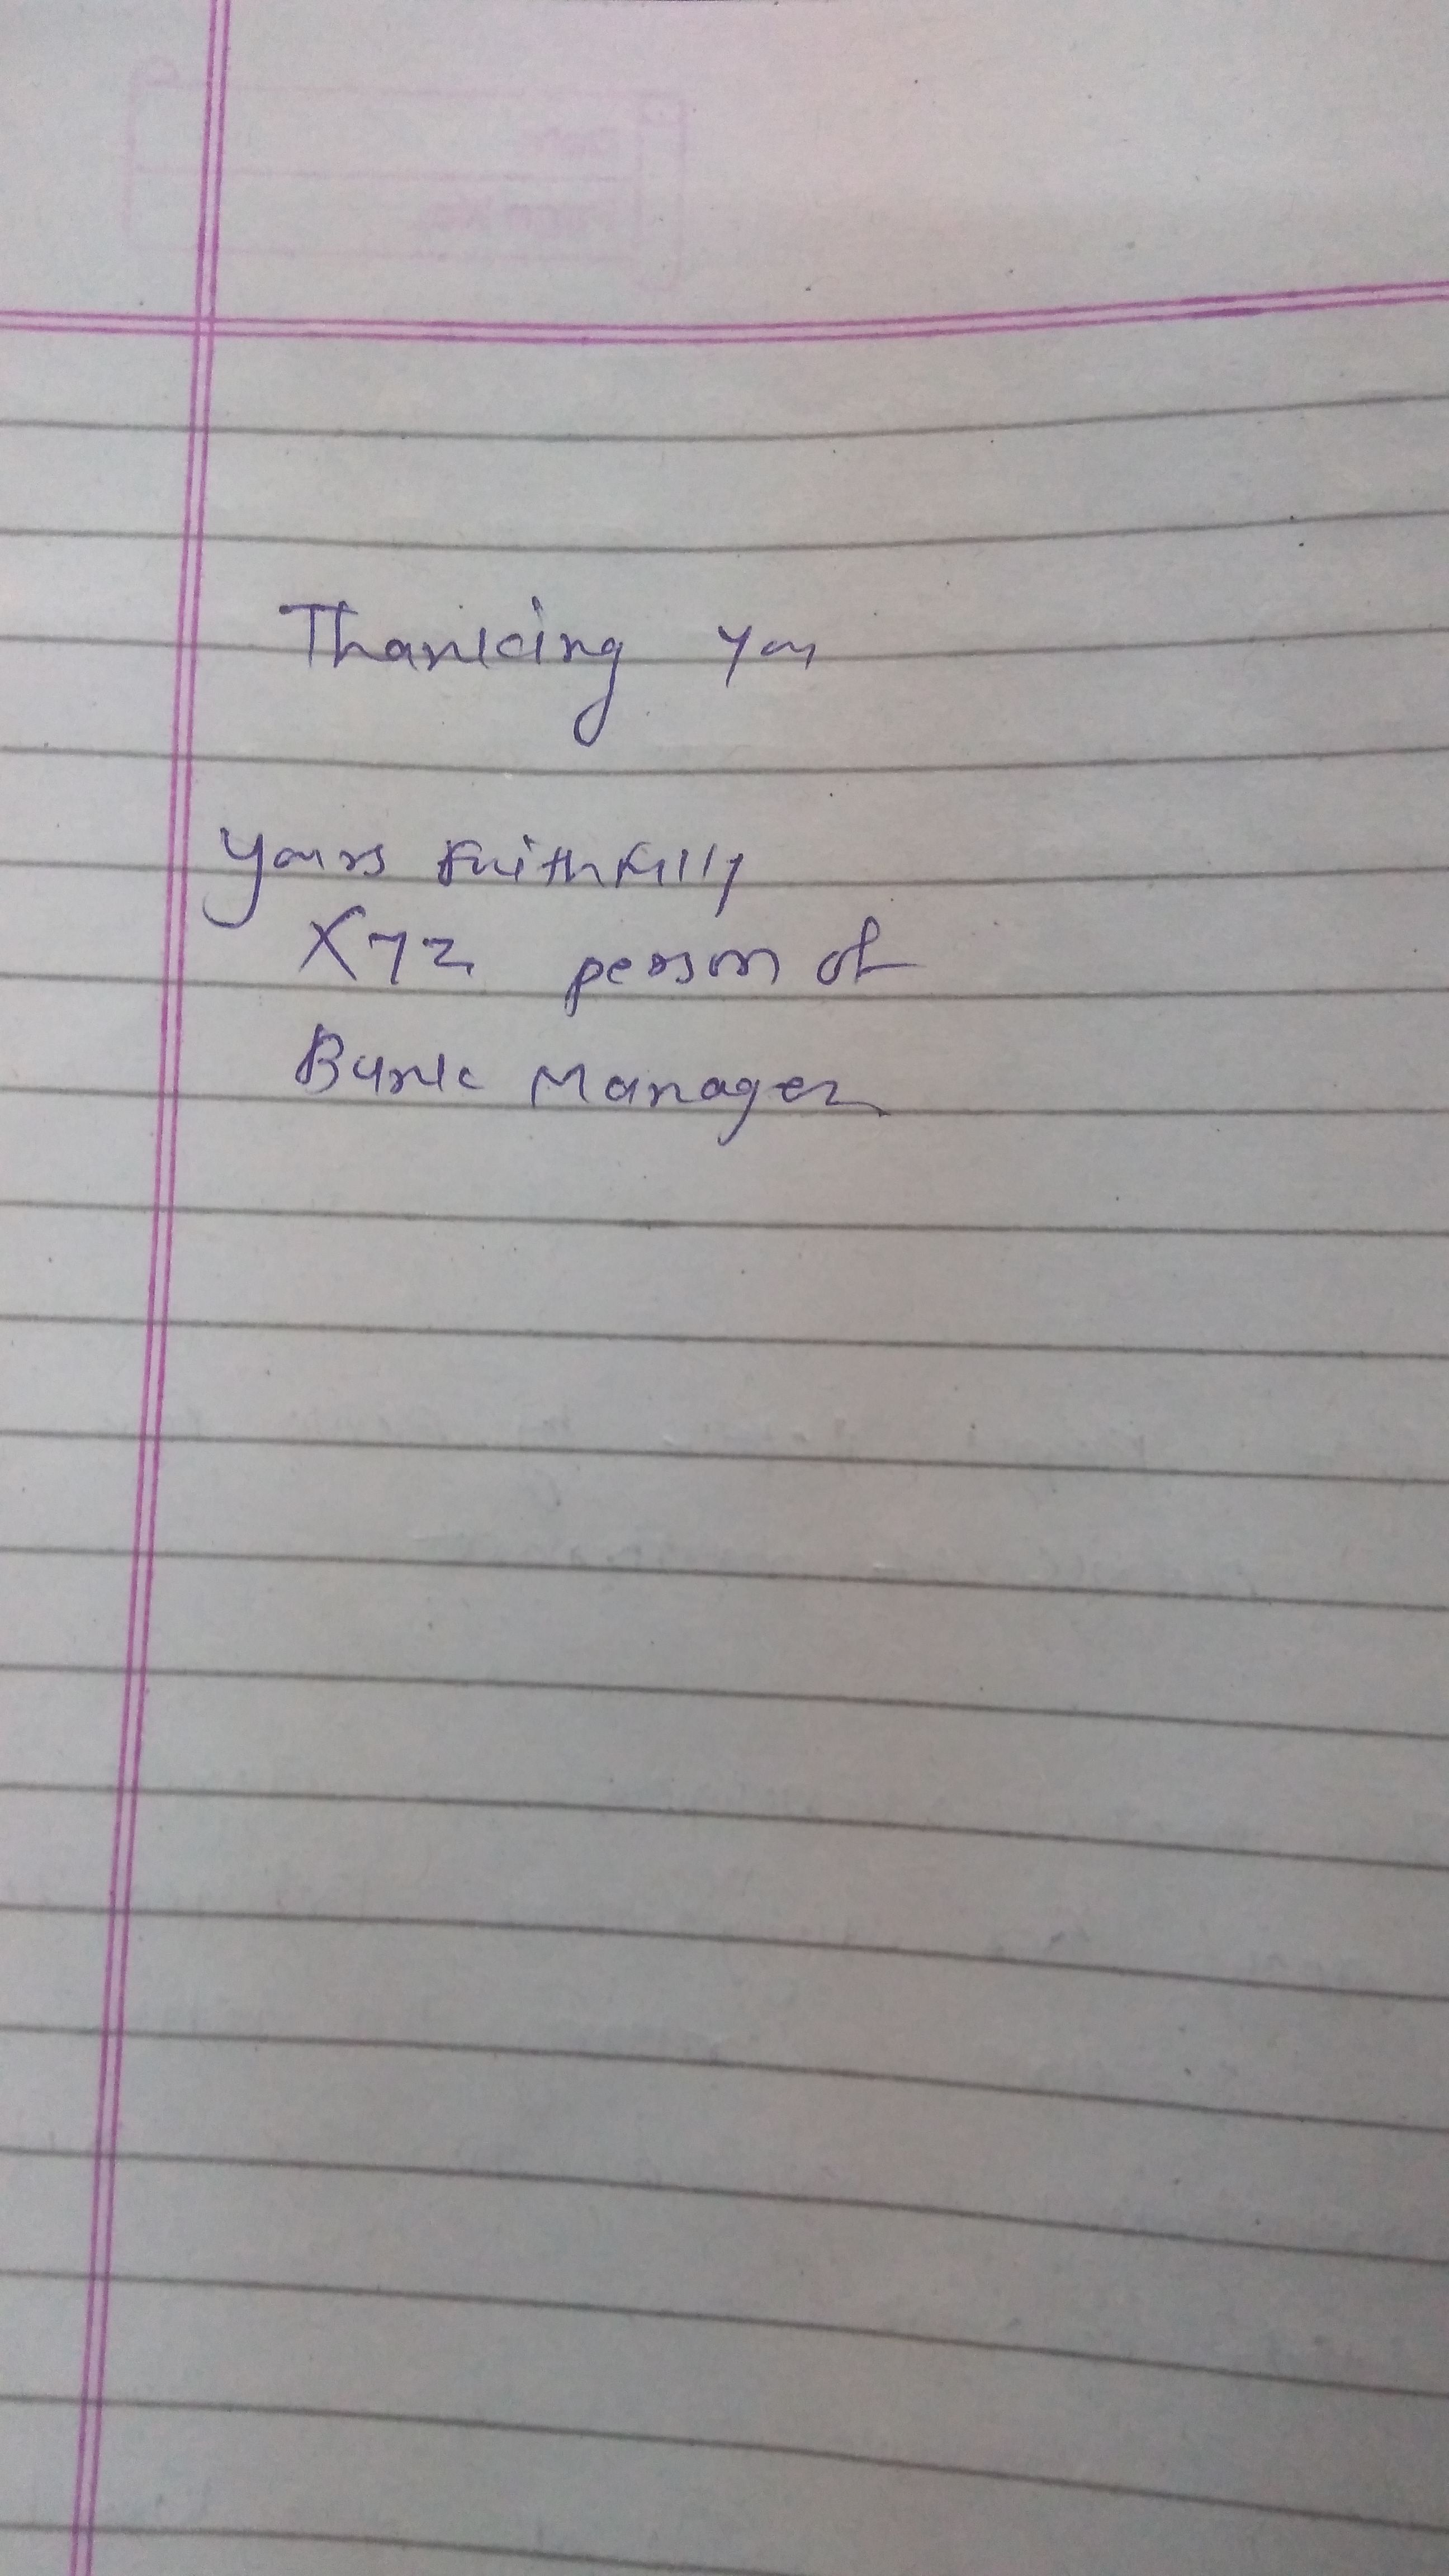 Thanking you
Yours Faithfully
XYZ person of
Bank Manager